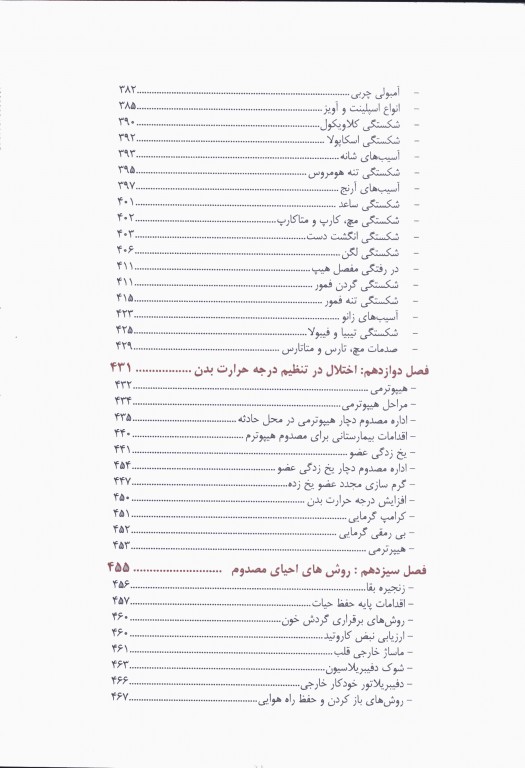 - آمبولی چربی ........ ۳۸۲
- انواع اسپلینت و آویز ........ ۳۸۵
- شکستگی کلاویکول ........ ۳۹۰
- شکستگی اسکاپولا ........ ۳۹۲
- آسیب‌های شانه ........ ۳۹۳
- شکستگی تنه هومروس ........ ۳۹۵
- آسیب‌های آرنج ........ ۳۹۷
- شکستگی ساعد ........ ۴۰۱
- شکستگی مچ، کارپ و متاکارپ ........ ۴۰۲
- شکستگی انگشت دست ........ ۴۰۳
- شکستگی لگن ........ ۴۰۶
- در رفتگی مفصل هیپ ........ ۴۱۱
- شکستگی گردن فمور ........ ۴۱۱
- شکستگی تنه فمور ........ ۴۱۵
- آسیب‌های زانو ........ ۴۲۳
- شکستگی تیبیا و فیبولا ........ ۴۲۵
- صدمات مچ، تارس و متاتارس ........ ۴۲۹
فصل دوازدهم: اختلال در تنظیم درجه حرارت بدن ........ ۴۳۱
- هیپوترمی ........ ۴۳۲
- مراحل هیپوترمی ........ ۴۳۴
- اداره مصدوم دچار هیپوترمی در محل حادثه ........ ۴۳۵
- اقدامات بیمارستانی برای مصدوم هیپوترم ........ ۴۴۰
- یخ زدگی عضو ........ ۴۴۱
- اداره مصدوم دچار یخ زدگی عضو ........ ۴۵۴
- گرم سازی مجدد عضو یخ زده ........ ۴۴۷
- افزایش درجه حرارت بدن ........ ۴۵۰
- کرامپ گرمایی ........ ۴۵۱
- بی رمقی گرمایی ........ ۴۵۲
- هیپرترمی ........ ۴۵۳
فصل سیزدهم : روش های احیای مصدوم ........ ۴۵۵
- زنجیره بقا ........ ۴۵۶
- اقدامات پایه حفظ حیات ........ ۴۵۷
- روش‌های برقراری گردش خون ........ ۴۶۰
- ارزیابی نبض کاروتید ........ ۴۶۰
- ماساژ خارجی قلب ........ ۴۶۱
- شوک دفیبریلاسیون ........ ۴۶۳
- دفیبریلاتور خودکار خارجی ........ ۴۶۶
- روش‌های باز کردن و حفظ راه هوایی ........ ۴۶۷